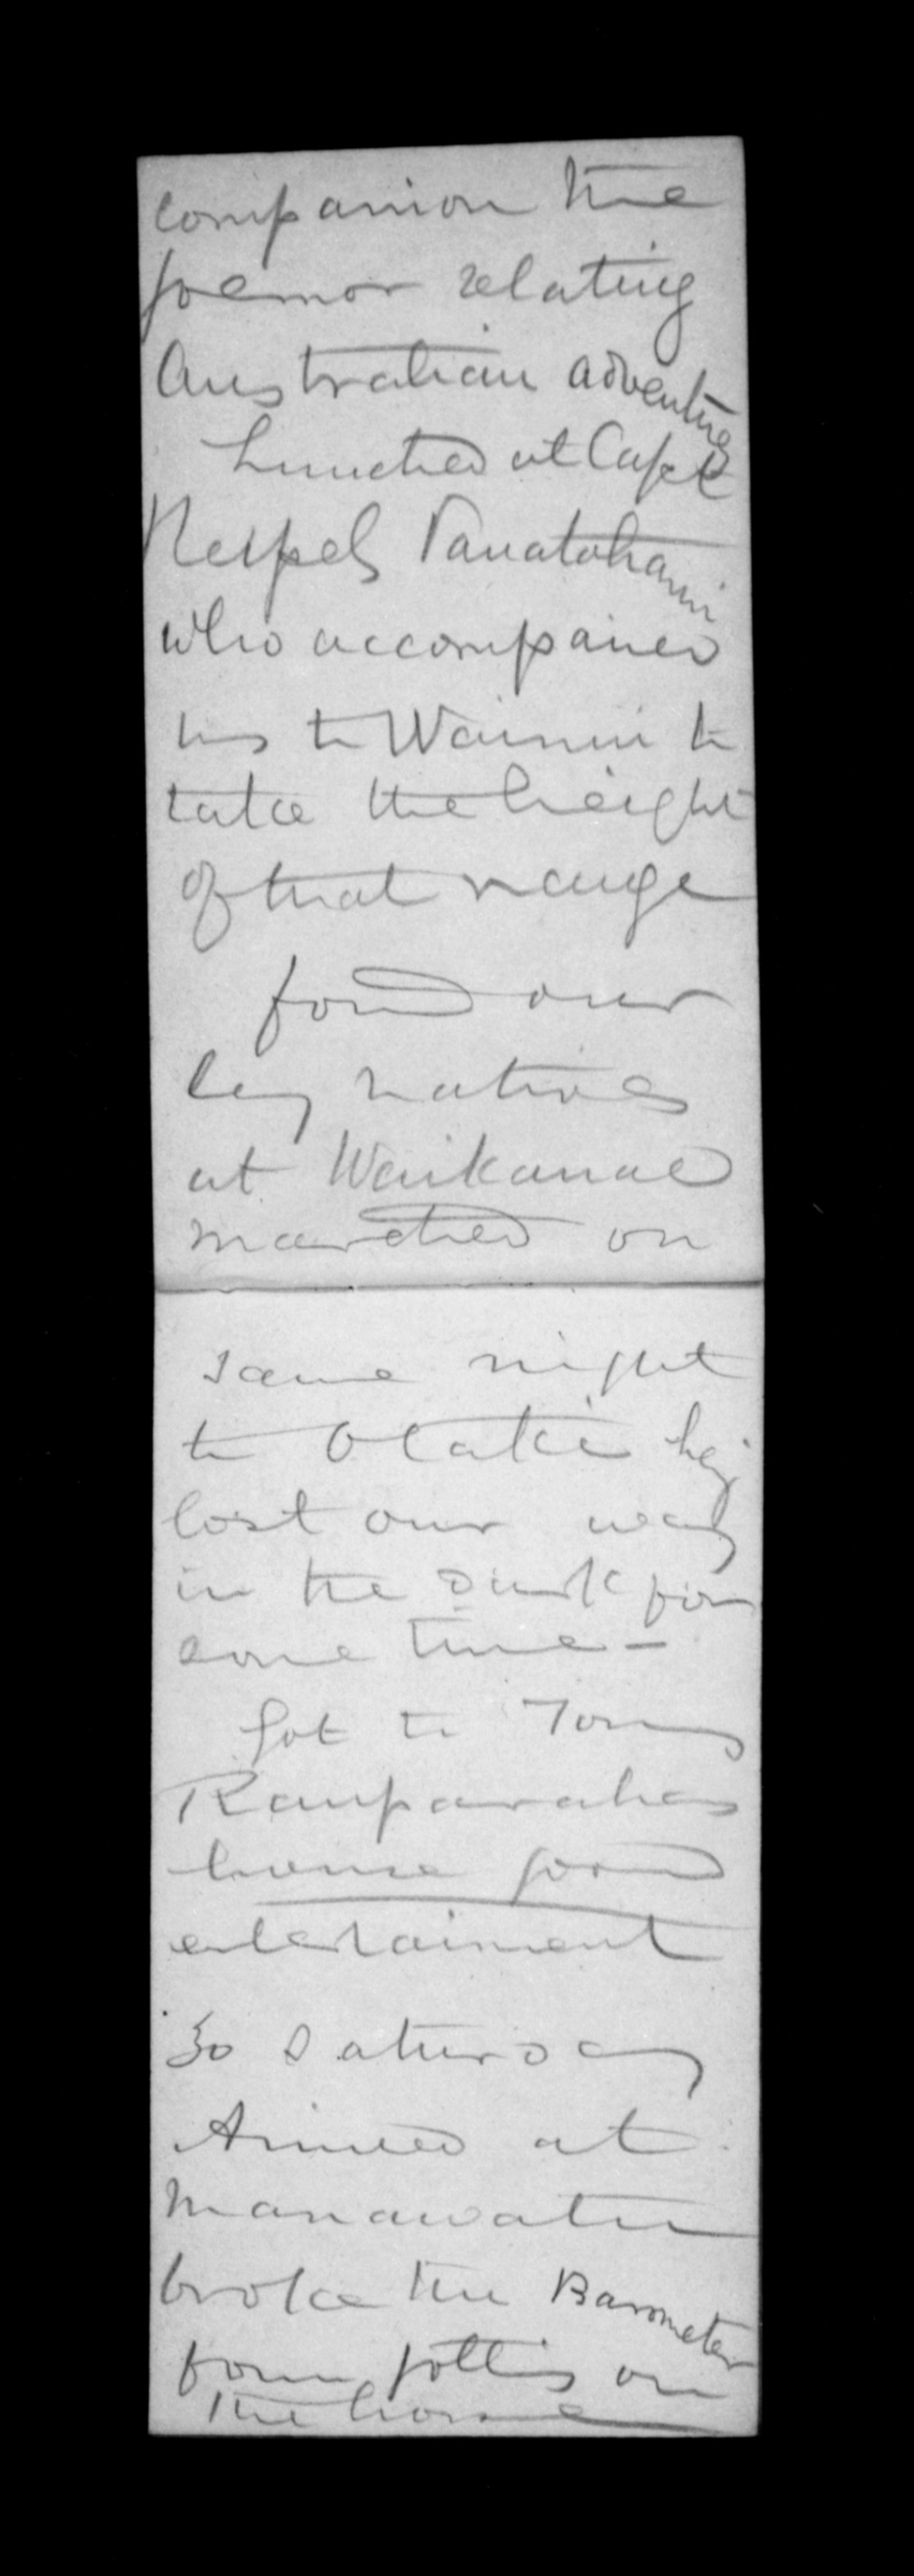 companion the
foemor relating
Australian adventures
Lunched at Capt
Nespels
who accompained
us to Wainui to
take the height
of that range
found our
lazy natives
at Waikanae
marched on
same night
to Otaki hvg
lost our way
in the dark for
some time -
Got to Toms
Rauparahas
house good
entertaiment
30 Saturday
Arrived at
Manawatu
broke the Barometer
from jolting on
the horse